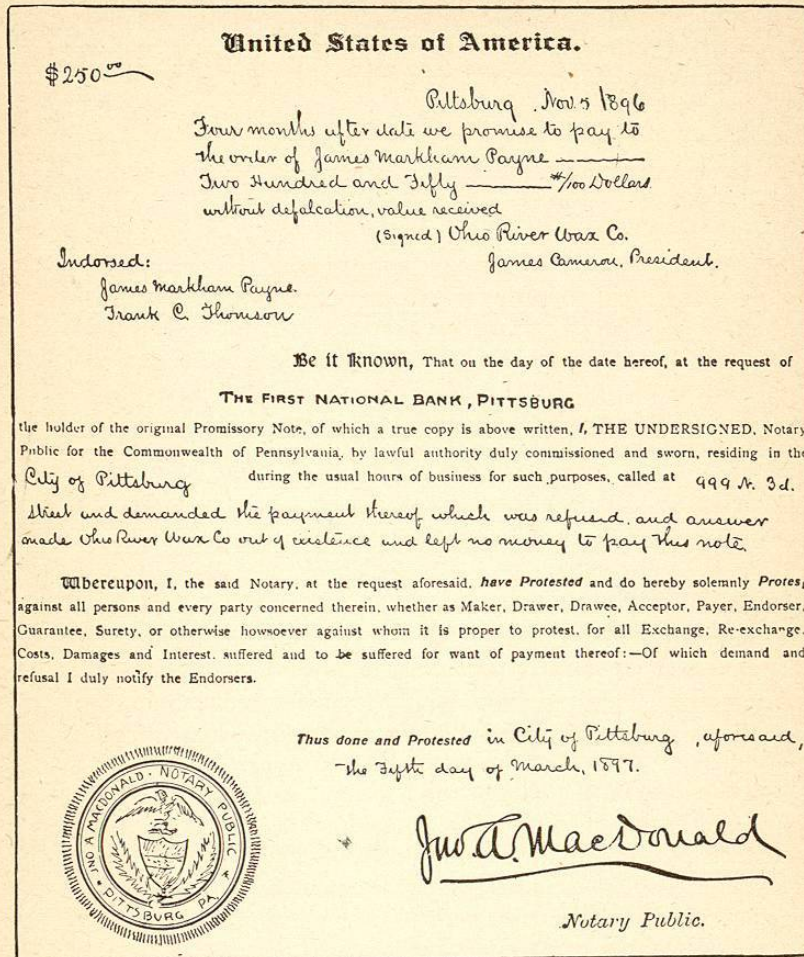 United States of America.
$250.00
Pittsburg, Nov. 5 1896
Four months after date we promise to pay to
the order of James Markham Payne
Two Hundred and Fifty /100 Dollars
without defalcation, value received
(Signed) Ohio River Wax Co.
Indorsed:
James Cameron, President.
James Markham Payne.
Frank C. Thomson
Be it Known, That on the day of the date hereof, at the request of
THE FIRST NATIONAL BANK, PITTSBURG
the holder of the original Promissory Note, of which a true copy is above written, I, THE UNDERSIGNED, Notary
Public for the Commonwealth of Pennsylvania, by lawful authority duly commissioned and sworn, residing in the
City of Pittsburg during the usual hours of business for such purposes, called at 999 N. 3d.
street and demanded the payment thereof which was refused, and answer
made Ohio River Wax Co out of existence and left no money to pay this note.
Whereupon, I, the said Notary, at the request aforesaid, have Protested and do hereby solemnly Protest,
against all persons and every party concerned therein, whether as Maker, Drawer, Drawee, Acceptor, Payer, Endorser,
Guarantee, Surety, or otherwise howsoever against whom it is proper to protest, for all Exchange, Re-exchange,
Costs, Damages and Interest, suffered and to be suffered for want of payment thereof:—Of which demand and
refusal I duly notify the Endorsers.
Thus done and Protested in City of Pittsburg, aforesaid,
the Fifth day of March, 1897.
JNO A MACDONALD · NOTARY PUBLIC
PITTSBURG PA.
Jno. A. MacDonald
Notary Public.